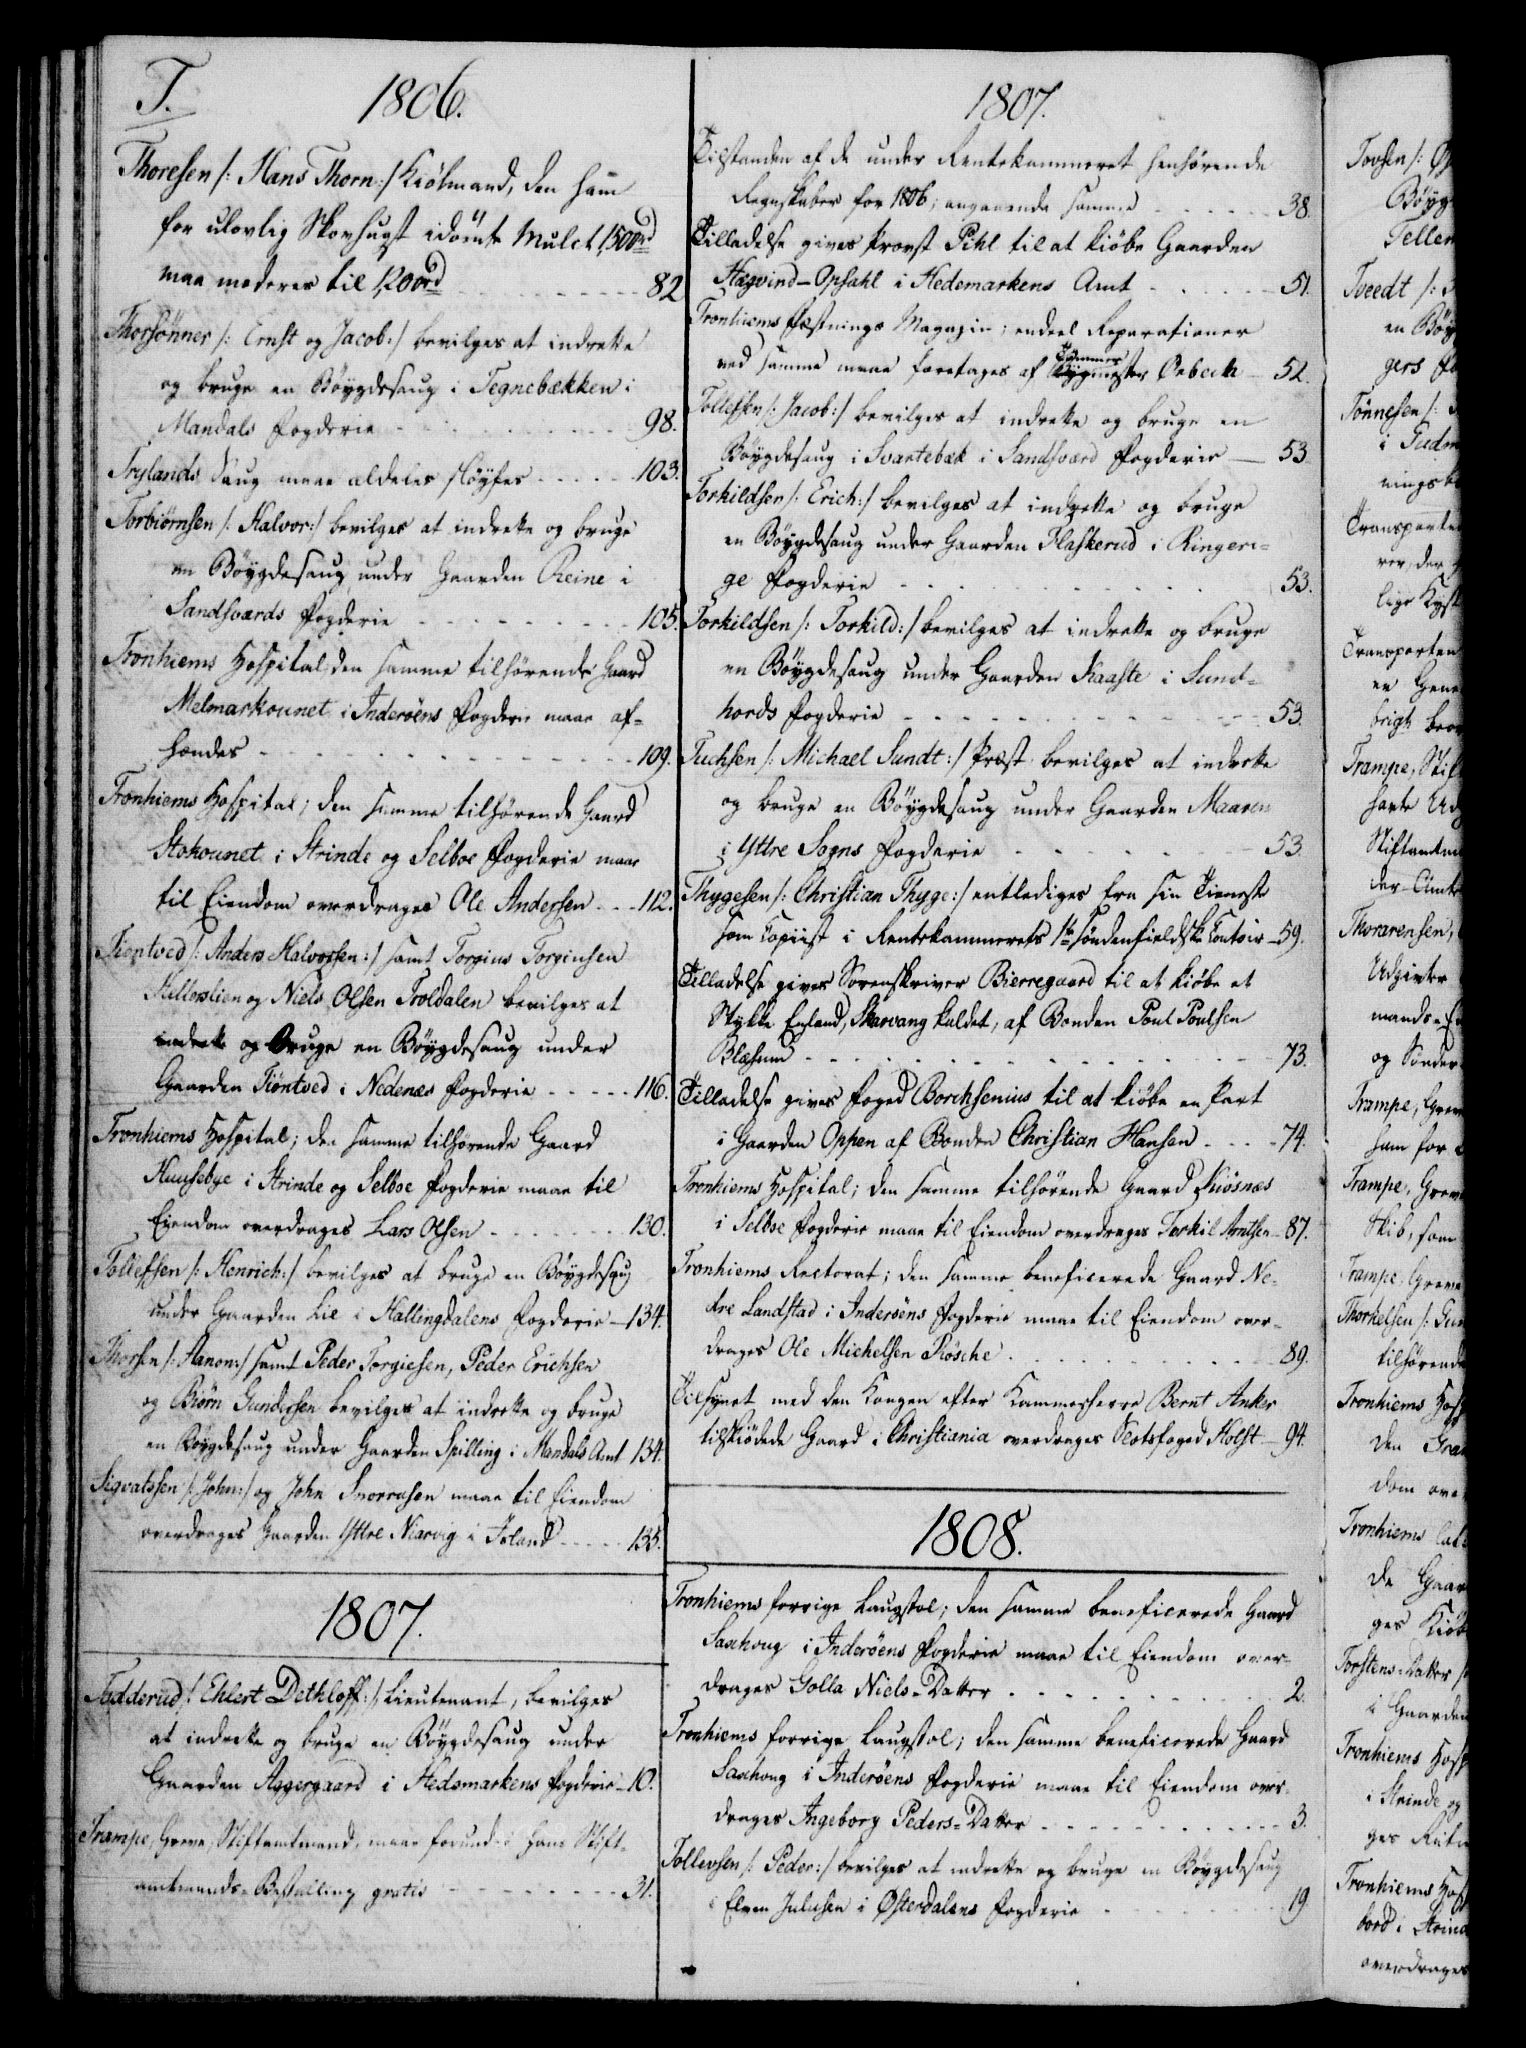 T.
1806.
Thoresen /: Hans Thorn :/ Kiøbmand, den ham
for ulovlig Skovhugst idømte Mulct 1500rd
maa moderes til 1200rd 82
Thorsønner /: Ernst og Jacob :/ bevilges at indrette
og bruge en Böygdesaug i Tegnebækken i
Mandals Fogderie 98.
Trylands Saug maae aldeles sløyfes 103.
Torbiørnsen /: Halvor :/ bevilges at indrette og bruge
en Böygdesaug under Gaarden Reine i
Sandsværds Fogderie 105.
Tronhiems Hospital, den samme tilhørende Gaard
Melmarkounet i Inderöens Fogderie maae af-
hændes 109.
Tronhiems Hospital; den samme tilhørende Gaard
Stokounet i Strinde og Selboe Fogderie maae
til Eiendom overdrages Ole Andersen 112.
Tiontved /: Anders Halvorsen :/ samt Torgius Torginsen
Hellerslien og Niels Olsen Troldalen bevilges at
indrette og bruge en Böygdesaug under
Gaarden Tiöntved i Nedenæs Fogderie 116.
Tronhiems Hospital; den samme tilhørende Gaard
Huusebye i Strinde og Selboe Fogderie maae til
Eiendom overdrages Lars Olsen 130.
Tollefsen /: Henrich :/ bevilges at bruge en Böygdesaug
under Gaarden Lie i Hallingdalens Fogderie 134.
Thorsen /: Hanon :/ samt Peder Torgiesen, Peder Erichsen
og Biørn Gundersen bevilges at indrette og bruge
en Böygdesaug under Gaarden Spilling i Mandals Amt 134.
Sigvatssen /: John :/ og John Snorrasen maae til Eiendom
overdrages Gaarden Yttre Niarvig i Island 135.
1807.
Tudderud /: Ehlert Dethloff :/ Lieutenant, bevilges
at indrette og bruge en Böygdesaug under
Gaarden Aggergaard i Hedemarkens Fogderie 10.
Trampe, Greve, Stiftamtmand, maae forundes hans Stift-
amtmands-Bestalling gratis 31.
1807.
Tilstanden af de under Rentekammeret henhørende
Regnskaber for 1806; angaaende samme 38.
Tilladelse gives Provst Pihl til at kiøbe Gaarden
Hagvind-Opsahl i Hedemarkens Amt 51.
Tronhiems Fæstnings Magazin; endeel Reparationer
ved samme maae foretages af Tømmermester Orbech 52.
Tollefsen /: Jacob :/ bevilges at indrette og bruge en
Böygdesaug i Svartebæk i Sandsværd Fogderie 53
Torkildsen /: Erich :/ bevilges at indrette og bruge
en Böygdesaug under Gaarden Flaskerud i Ringeri-
ge Fogderie 53.
Torkildsen /: Torkild :/ bevilges at indrette og bruge
en Böygdesaug under Gaarden Kaaste i Sund-
hords Fogderie 53.
Tuchsen /: Michael Sundt :/ Præst bevilges at indrette
og bruge en Böygdesaug under Gaarden Maaren
i Yttre Sogns Fogderie 53.
Thygesen /: Christian Thyge :/ entlediges fra sin Tieneste
som Copiist i Rentekammerets 1te søndenfieldske Contoir 59.
Tilladelse gives Sorenskriver Bierregaard til at kiøbe et
Stykke England, Skarvang kaldet, af Bonden Poul Poulsen
Blæsum 73.
Tilladelse gives Foged Borchsenius til at kiøbe en Part
i Gaarden Oppen af Bonden Christian Hansen 74.
Tronhiems Hospital; den samme tilhørende Gaard Kiösnæs
i Selboe Fogderie maae til Eiendom overdrages Torkil Arntsen 87.
Tronhiems Rectorat; den samme beneficerede Gaard Ne-
dre Landstad i Inderöens Fogderie maae til Eiendom over-
drages Ole Michelsen Rösche 89.
Tilsynet med den Kongen efter Kammerherre Bernt Anker
tilskiödede Gaard i Christiania overdrages Slotsfoged Holst 94.
1808.
Tronhiems forrige Laugstol; den samme beneficerede Gaard
Saxhoug i Inderöens Fogderie maae til Eiendom over-
drages Golla Niels-Datter 2.
Tronhiems forrige Laugstol; den samme beneficerede Gaard
Saxhoug i Inderöens Fogderie maae til Eiendom over-
drages Ingeborg Peders-Datter 3.
Tollevsen /: Peder :/ bevilges at indrette og bruge en Böygdesaug
i Elven Julusen i Østerdalens Fogderie 19
Tovsen /:
Böyg
Tellem
Tveedt /:
en Böy
gers Fo
Tönnesen /:
i Gudm
nings
Transporten
rer, der
lige Kyst
Transporten
er Gene
brigt
Trampe, Stif
havte Ud
Stiftamtm
der-Amt
Thorarensen,
Udgivter
mands-
og Sønder
Trampe, Greve
ham for
Trampe, Greve
Skib, som
Trampe, Greve
Thorkelsen /: Gun
tilhørende
Tronhiems Hosp
den Gaar
dom over
Tronhiems lat
de Gaar
ges Kiøb
Torstens-Datter
i Gaarden
Tronhiems Hosp
i Strinde og
ges
Tronhiems Hosp
bord i Strind
overdrages